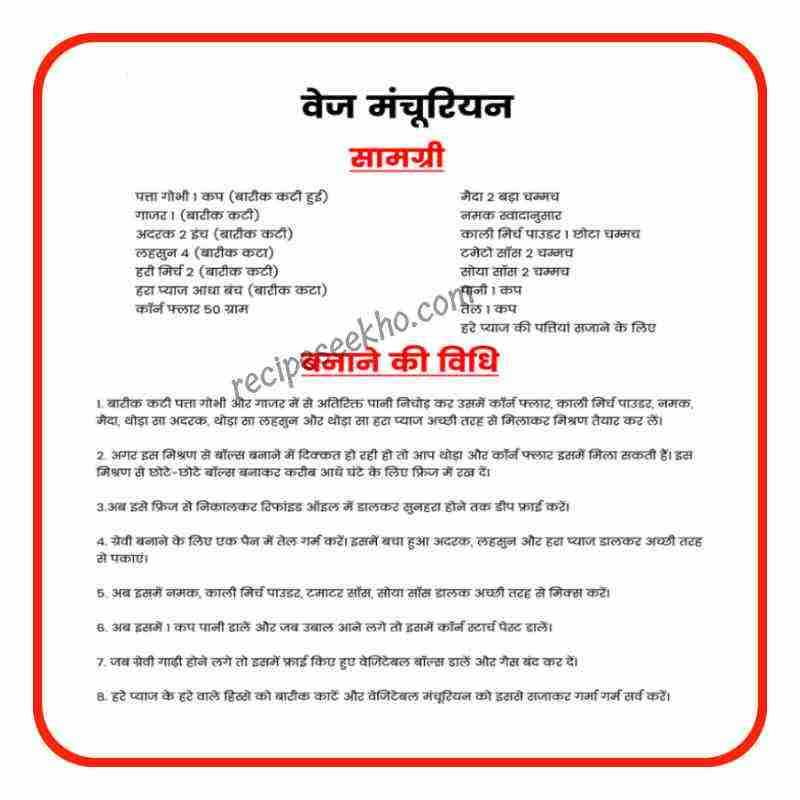 वेज मंचूरियन
सामग्री
पत्ता गोभी 1 कप (बारीक कटी हुई)
गाजर 1 (बारीक कटी)
अदरक 2 इंच (बारीक कटी)
लहसुन 4 (बारीक कटा)
हरी मिर्च 2 (बारीक कटी)
हरा प्याज आधा बंच (बारीक कटा)
कॉर्न फ्लार 50 ग्राम
मैदा 2 बड़ा चम्मच
नमक स्वादानुसार
काली मिर्च पाउडर 1 छोटा चम्मच
टमेटो सॉस 2 चम्मच
सोया सॉस 2 चम्मच
पानी 1 कप
तेल 1 कप
हरे प्याज की पत्तियां सजाने के लिए
recipeseekho.com
बनाने की विधि
1. बारीक कटी पत्ता गोभी और गाजर में से अतिरिक्त पानी निचोड़ कर उसमें कॉर्न फ्लार, काली मिर्च पाउडर, नमक,
मैदा, थोड़ा सा अदरक, थोड़ा सा लहसुन और थोड़ा सा हरा प्याज अच्छी तरह से मिलाकर मिश्रण तैयार कर लें।
2. अगर इस मिश्रण से बॉल्स बनाने में दिक्कत हो रही हो तो आप थोड़ा और कॉर्न फ्लार इसमें मिला सकती हैं। इस
मिश्रण से छोटे-छोटे बॉल्स बनाकर करीब आधे घंटे के लिए फ्रिज में रख दें।
3.अब इसे फ्रिज से निकालकर रिफांइड ऑइल में डालकर सुनहरा होने तक डीप फ्राई करें।
4. ग्रेवी बनाने के लिए एक पैन में तेल गर्म करें। इसमें बचा हुआ अदरक, लहसुन और हरा प्याज डालकर अच्छी तरह
से पकाएं।
5. अब इसमें नमक, काली मिर्च पाउडर, टमाटर सॉस, सोया सॉस डालक अच्छी तरह से मिक्स करें।
6. अब इसमें 1 कप पानी डालें और जब उबाल आने लगे तो इसमें कॉर्न स्टार्च पेस्ट डालें।
7. जब ग्रेवी गाढ़ी होने लगे तो इसमें फ्राई किए हुए वेजिटेबल बॉल्स डालें और गैस बंद कर दें।
8. हरे प्याज के हरे वाले हिस्से को बारीक काटें और वेजिटेबल मंचूरियन को इससे सजाकर गर्मा गर्म सर्व करें।